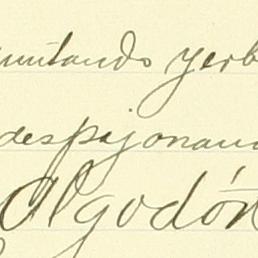 untando yerb
despajonand
Algodón